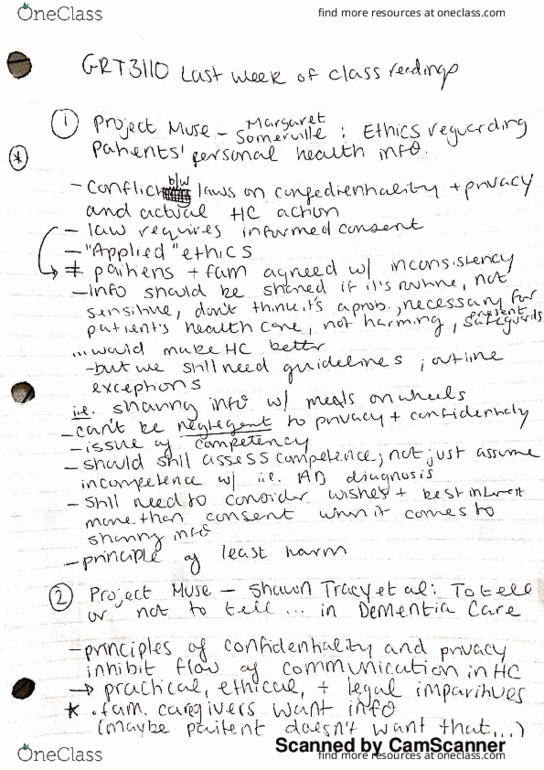 OneClass
find more resources at oneclass.com
GRT3110 Last week of class readings
① Project Muse - Margaret Somerville : Ethics reguarding
Patients' personal health info.
- Conflict b/w laws on confedienhality + privacy
and actual HC action
- law requires informed consent
- "Applied" ethics
* paitiens + fam agreed w/ inconsistency
- Info should be shared if it's routine, not
sensitive, don't think it's a prob., necessary for
patient's health care, not harming, present safeguards
... would make HC better
- but we still need guidelines ; outline
exceptions
i.e. sharing info w/ meals on wheels
- can't be neglegent to privacy + confidentiality
- issue of competency
- should still assess competence; not just assume
incompetence w/ i.e. AD diagnosis
- Still need to consider wishes + best interest
more than consent when it comes to
sharing info
- principle of least harm
② Project Muse - Shawn Tracy et al: To tell
or not to tell ... in Dementia Care
- principles of confidentiality and privacy
inhibit flow of communication in HC
→ practical, ethical, + legal imparitives
* . fam. caregivers want info
(maybe paitent doesn't want that...)
Scanned by CamScanner
OneClass
find more resources at oneclass.com